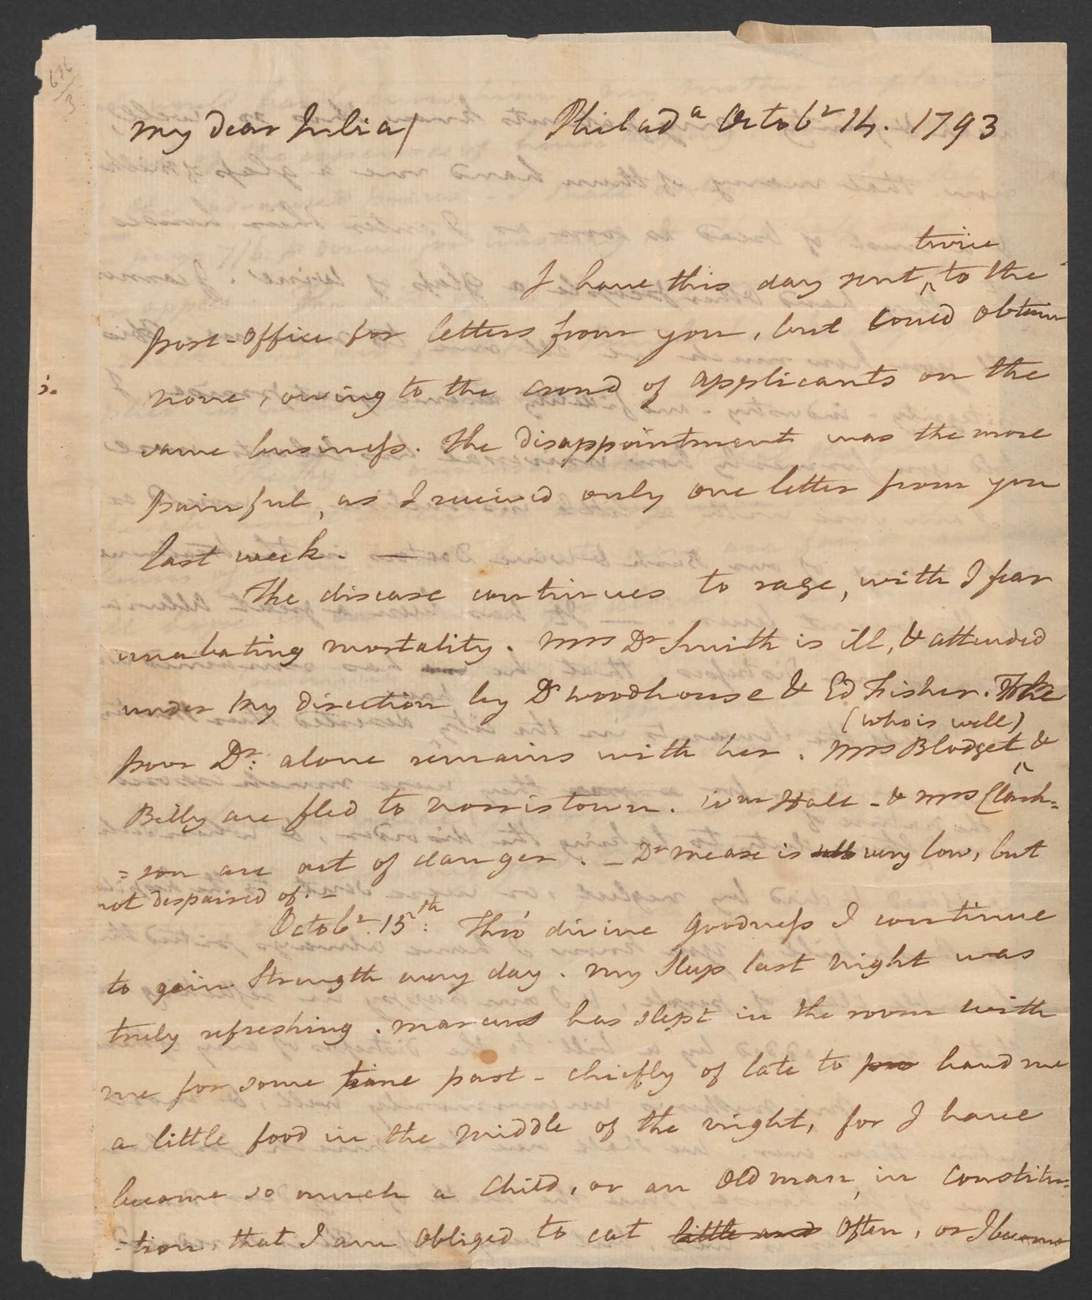 676/3
My dear Julia/ Philad.a Octobr 14. 1793
twice
I have this day sent ^ to the
post-office for letters from you, but could obtain
none, owing to the crowd of applicants on the
same business. The disappointment was the more
painful, as I received only one letter from you
last week. —
The disease continues to rage, with I fear
unabating mortality. Mrs Dr Smith is ill, & attended
under my direction by Dr Woodhouse & Ed Fisher. The
(who is well)
poor Dr: alone remains with her. Mrs Blodget ^ &
Billy are fled to Norristown. Wm Hall - & Mrs Clark=
=son are out of danger. — Dr Mease is very low, but
not despaired of. —
Octobr. 15th: Thro' divine goodness I continue
to gain strength every day. My sleep last night was
truly refreshing. Marcus has slept in the room with
me for some time past - chiefly of late to hand me
a little food in the middle of the night, for I have
become so much a child, or an old man, in constitu=
=tion, that I am obliged to eat little and often, or I become